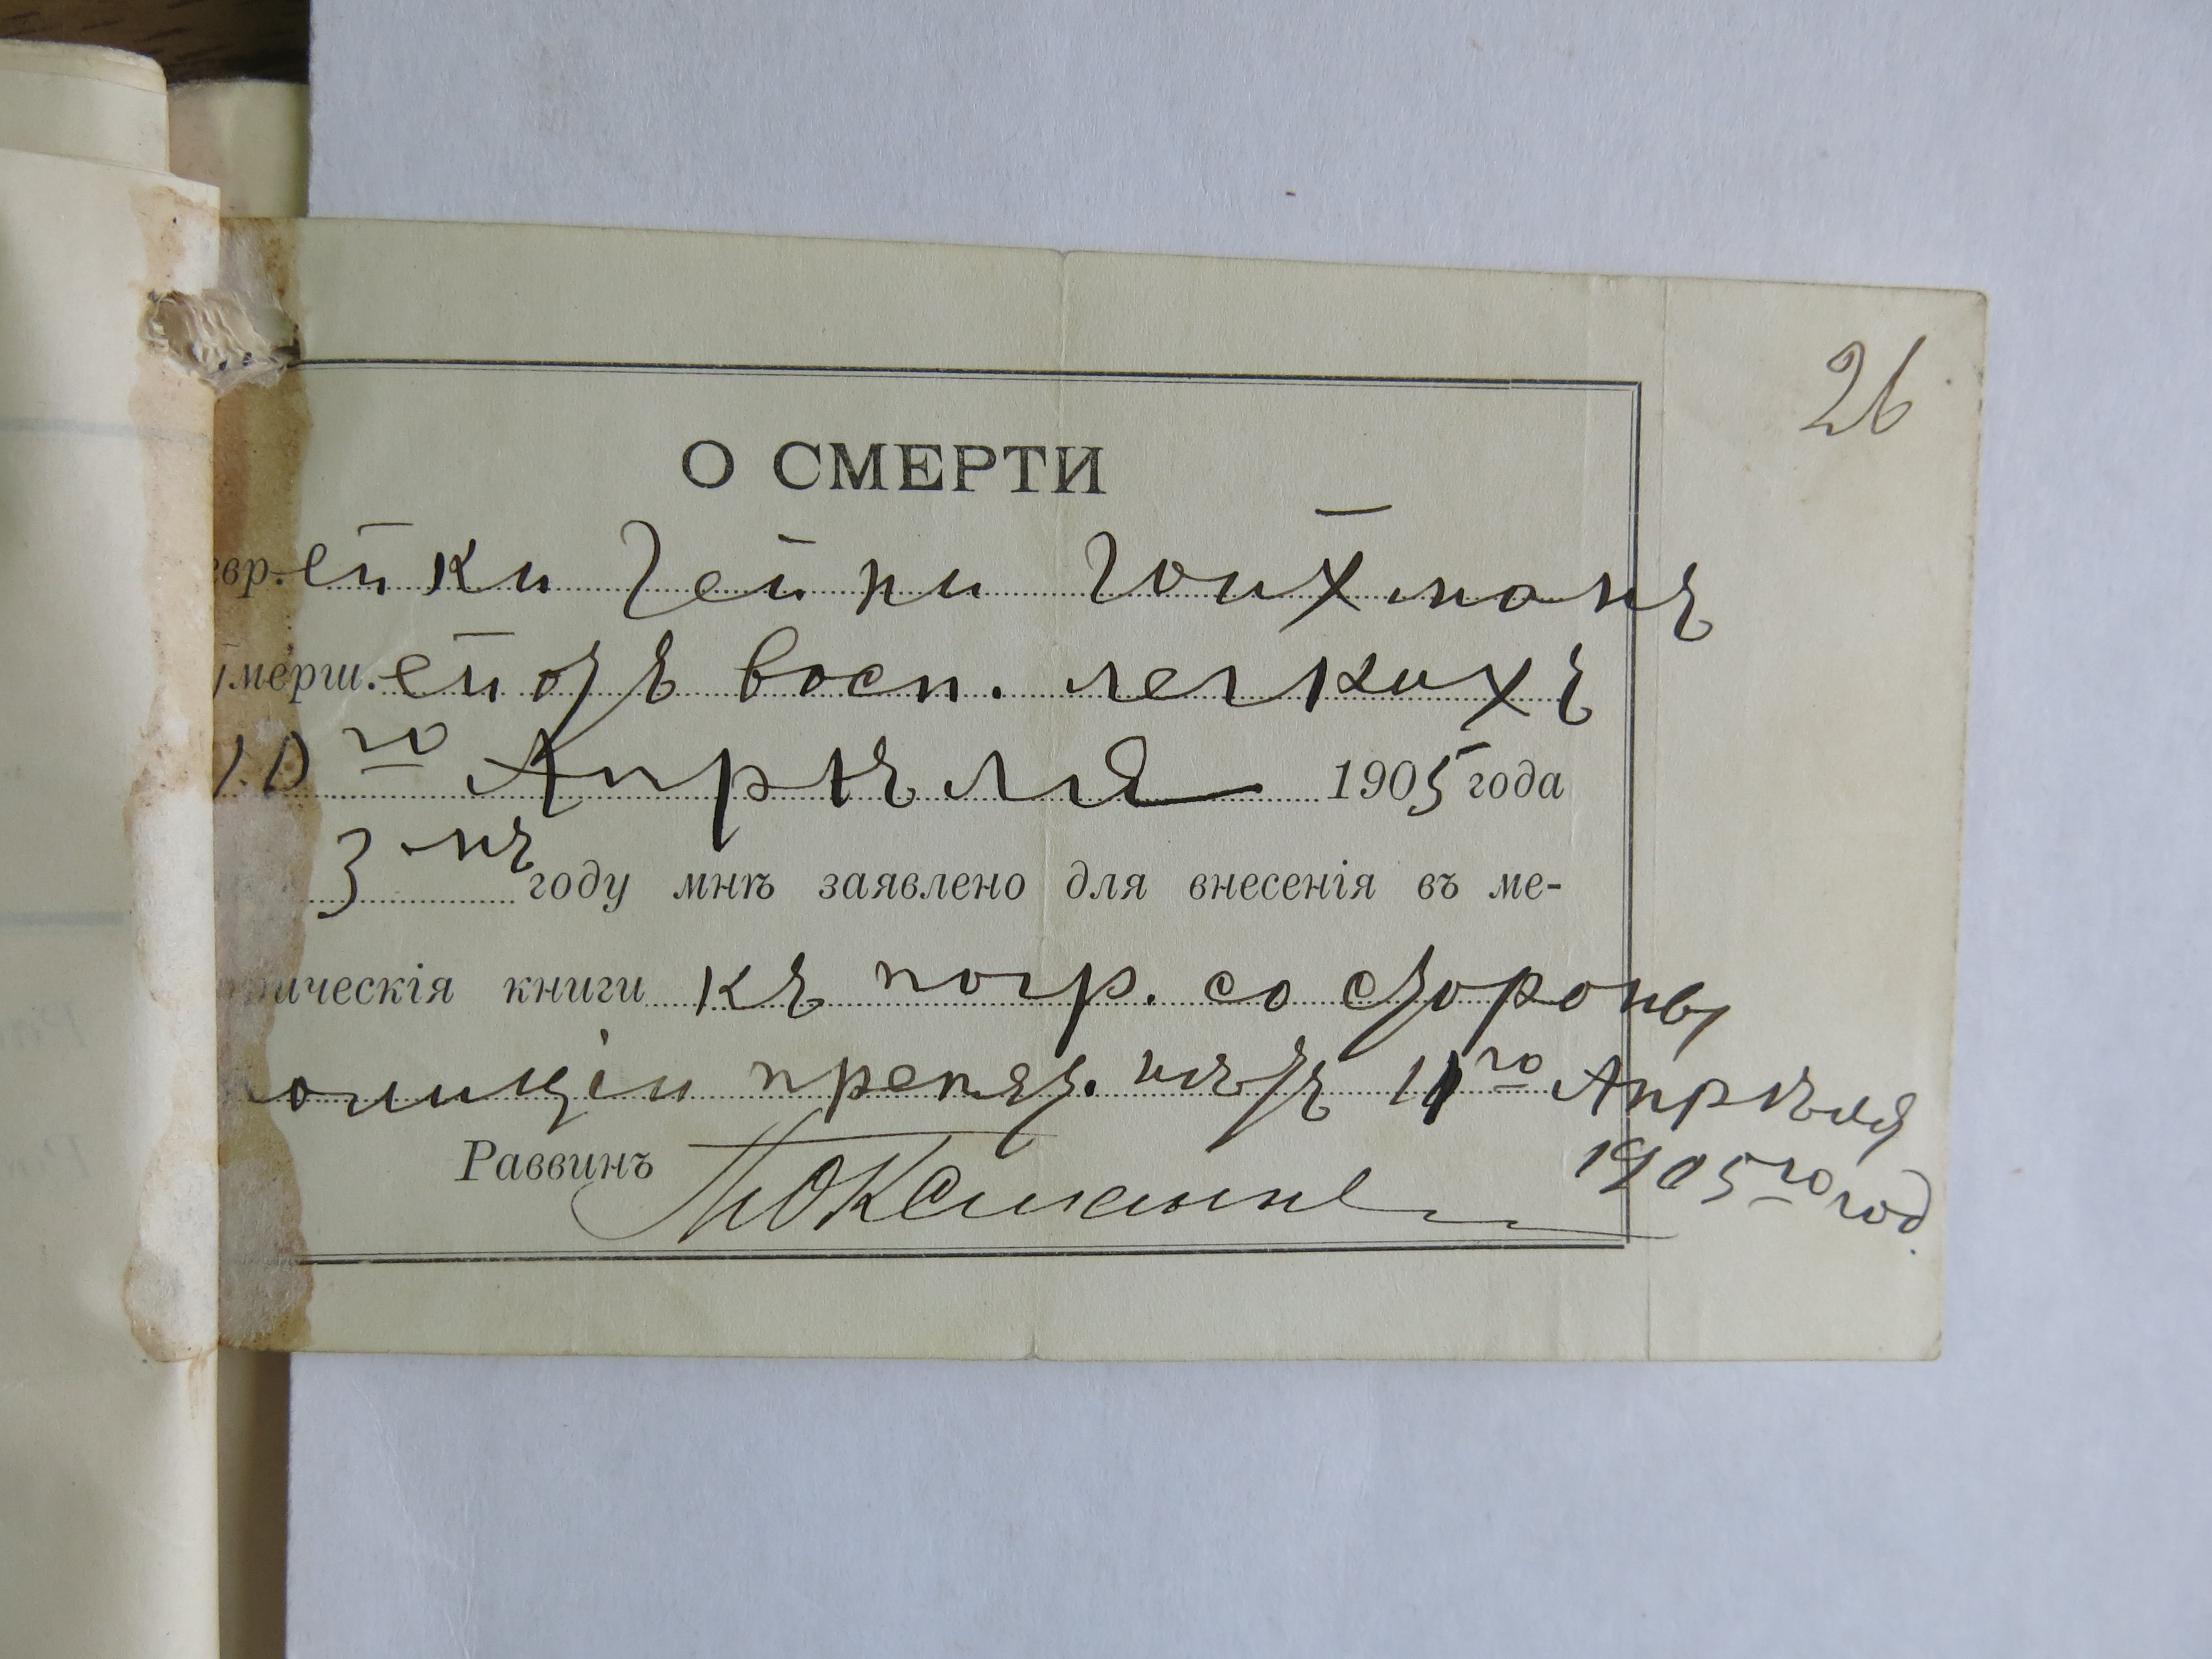 26
О СМЕРТИ
евр. ейки Гейни Гойхманъ
умерш. ей отъ восп. легкихъ
10го Апрѣля 1905 года
3 мъ году мнѣ заявлено для внесенія въ ме-
рическія книги къ погр. со стороны
полиціи препят. нѣтъ 11го Апрѣля
1905го год.
Раввинъ